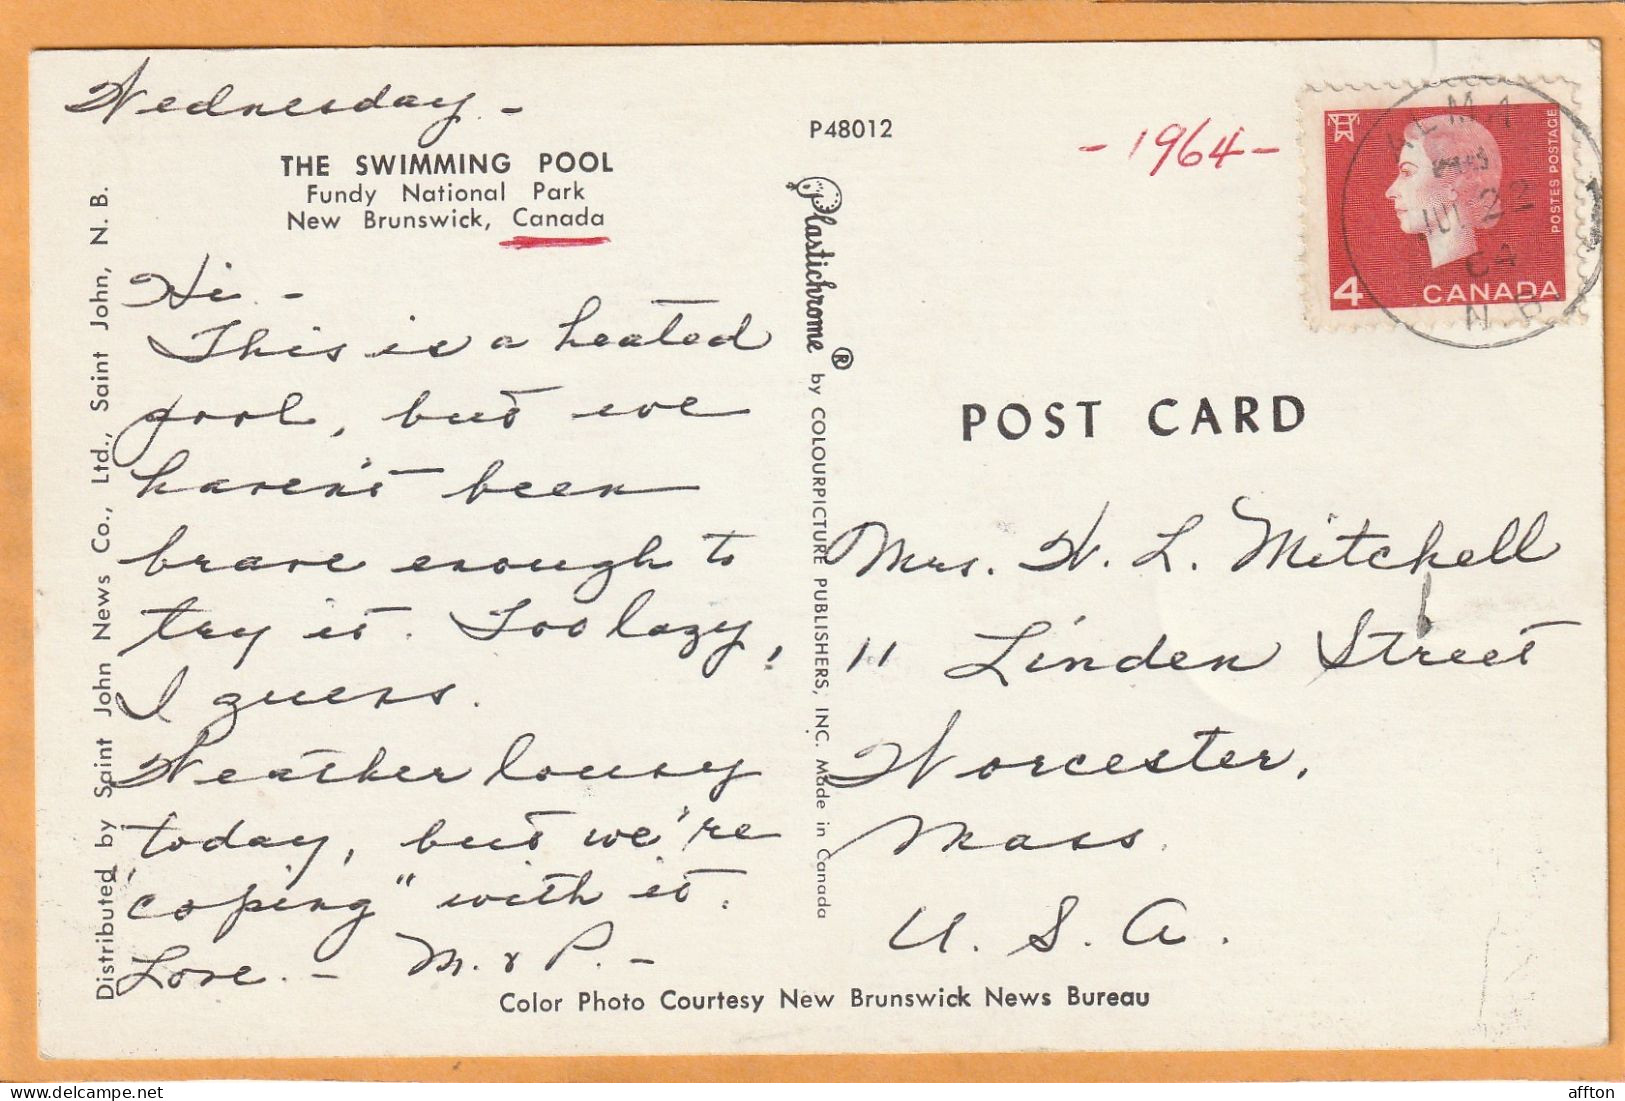 Wednesday -
THE SWIMMING POOL
Fundy National Park
New Brunswick, Canada
Hi -
This is a heated
pool, but we
haven't been
brave enough to
try it. Too lazy,
I guess.
Weather lousy
today, but we're
"coping" with it.
Love. - M. & P. -
Distributed by Saint John News Co., Ltd., Saint John, N. B.
P48012
Plastichrome ® by COLOURPICTURE PUBLISHERS, INC. Made in Canada
- 1964 -
4 CANADA
POSTES POSTAGE
JUL 22
64
N B
POST CARD
Mrs. W. L. Mitchell
11 Linden Street
Worcester,
Mass.
U. S. A.
Color Photo Courtesy New Brunswick News Bureau
affton